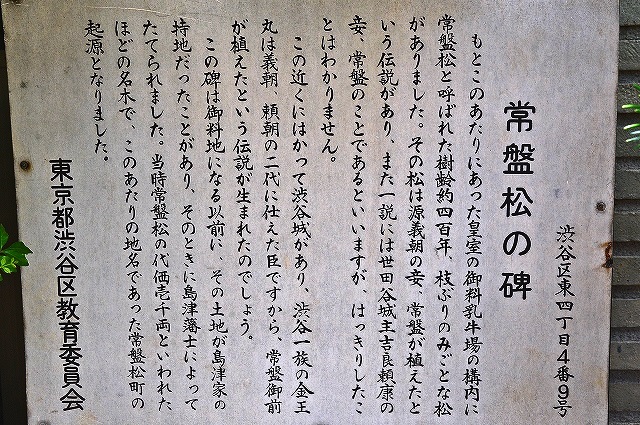 渋谷区東四丁目4番9号
常盤松の碑
もとこのあたりにあった皇室の御料乳牛場の構内に
常盤松と呼ばれた樹齢約四百年、枝ぶりのみごとな松
がありました。その松は源義朝の妾、常盤が植えたと
いう伝説があり、また一説には世田谷城主吉良頼康の
妾、常盤のことであるといいますが、はっきりしたこ
とはわかりません。
この近くにはかつて渋谷城があり、渋谷一族の金王
丸は義朝、頼朝の二代に仕えた臣ですから、常盤御前
が植えたという伝説が生まれたのでしょう。
この碑は御料地になる以前に、その土地が島津家の
持地だったことがあり、そのときに島津藩士によって
たてられました。当時常盤松の代価壱千両といわれた
ほどの名木で、このあたりの地名であった常盤松町の
起源となりました。
東京都渋谷区教育委員会